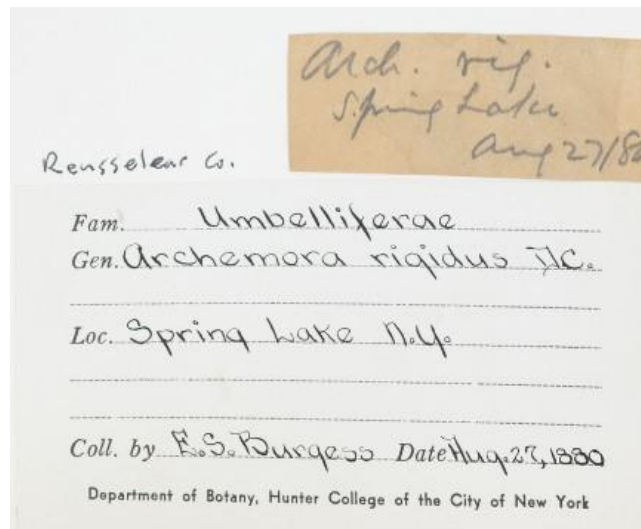 Arch. rig.
Spring Lake
Aug 27/80
Rensselear Co.
Fam. Umbelliferae
Gen. Archemora rigidus D.C.
Loc. Spring Lake N.Y.
Coll. by E.S. Burgess Date Aug. 27, 1880
Department of Botany, Hunter College of the City of New York